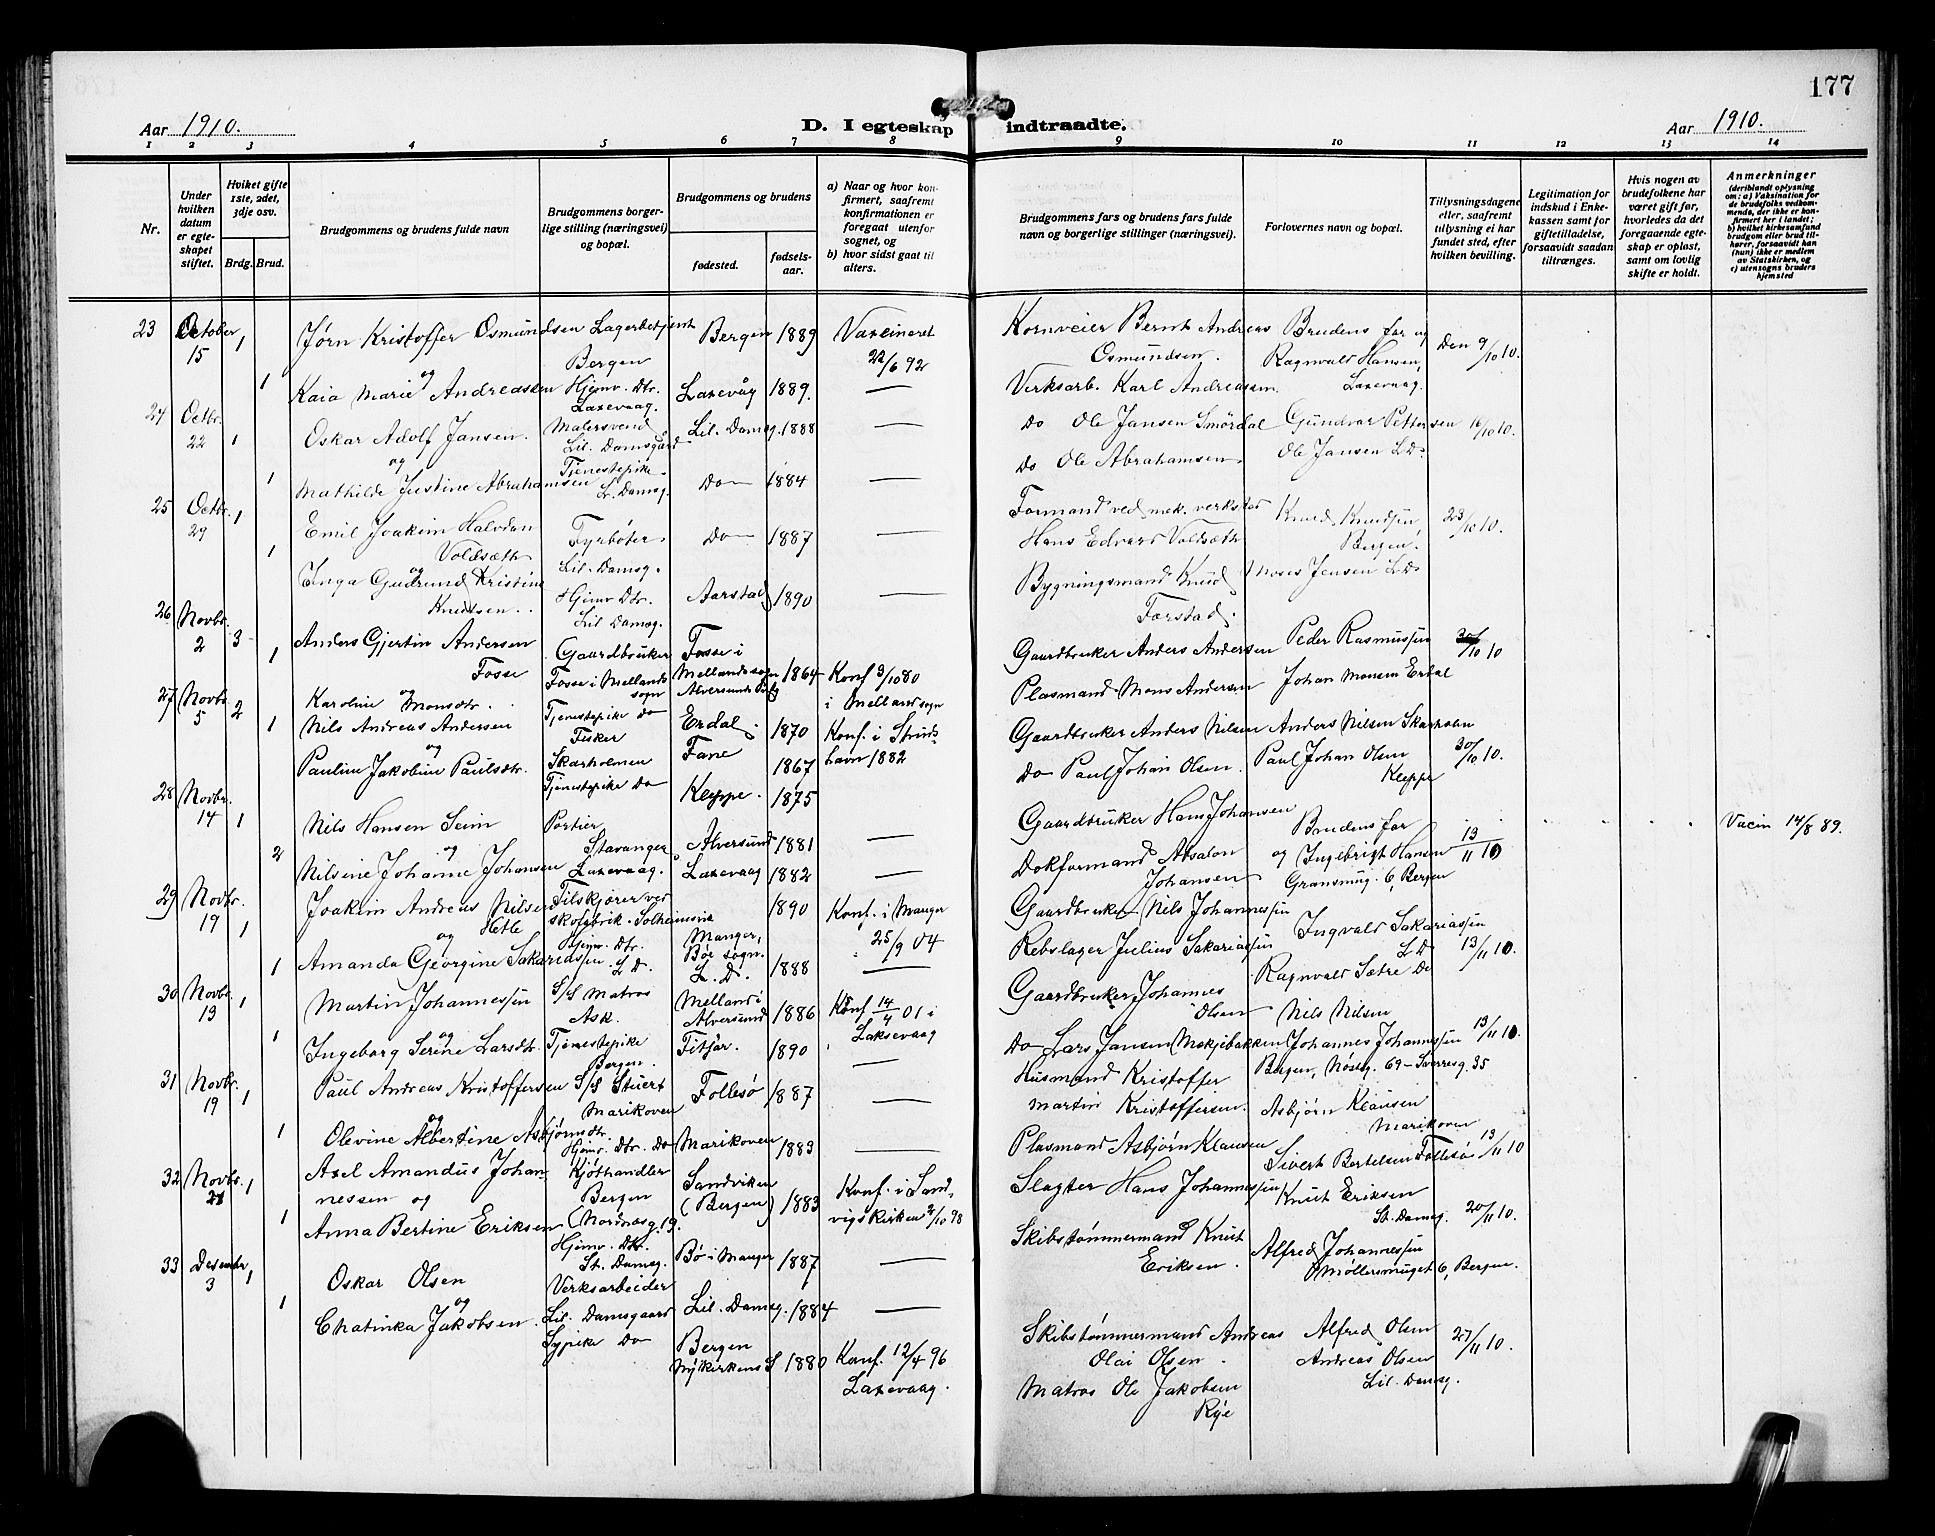 177
Aar 1910.
D. I egteskap indtraadte.
Aar 1910.
1 2 3 4 5 6 7 8 9 10 11 12 13 14
Nr.
Under hvilken datum er egteskapet stiftet.
Hvilket gifte 1ste, 2det, 3dje osv.
Brdg. Brud.
Brudgommens og brudens fulde navn
Brudgommens borgerlige stilling (næringsvei) og bopæl.
Brudgommens og brudens
fødested.
fødselsaar.
a) Naar og hvor konfirmert, saafremt konfirmationen er foregaat utenfor sognet, og
b) hvor sidst gaat til alters.
Brudgommens fars og brudens fars fulde navn og borgerlige stillinger (næringsvei).
Forlovernes navn og bopæl.
Tillysningsdagene eller, saafremt tillysning ei har fundet sted, efter hvilken bevilling.
Legitimation for indskud i Enkekassen samt for giftetilladelse, forsaavidt saadan tiltrænges.
Hvis nogen av brudefolkene har været gift før, hvorledes da det foregaaende egteskap er oplast, samt om lovlig skifte er holdt.
Anmerkninger
(deriblandt oplysning om: a) Vaksination for de brudefolks vedkommende, der ikke er konfirmert her i landet; b) hvilket kirkesamfund brudgom eller brud tilhører, forsaavidt han (hun) ikke er medlem av Statskirken, og c) utensogns bruders hjemsted
23 October 15 1 Jørn Kristoffer Osmundsen Lagerbetjent Bergen Bergen 1889 Vaxineret 22/6 92 Kornveier Bernt Andreas Osmundsen. Brudens far og Ragnvald Hansen, Laxevaag. Den 9/10 10.
og
1 Kaia Marie Andreassen Hjemv. Dtr. Laxevaag. Laxevåg 1889. — Verksarb. Karl Andreassen
24 Octbr. 22 1 Oskar Adolf Jansen. Malersvend Lil. Damsgaard Lil. Damsg. 1888 — Do Ole Jansen Smørdal Gundvar Pettersen 16/10 10.
og
1 Mathilde Justine Abrahamsen Tjenestepike L. Damsg. Do 1884 — Do Ole Abrahamsen Ole Jansen L D.
25 Octbr. 29 1 Emil Joakim Halvdan Voldsæth Fyrbøter Lil. Damsg. Do 1887 — Formand ved mek. verksted Hans Edvard Voldsæth Knud Knudsen Bergen. 23/10 10.
og
1 Inga Gudrund Kristine Knudsen. Hjemv Dtr. Lil Damsg. Aarstad 1890 — Bygningsmand Knud Farstad. Moses Jensen L D
26 Novbr. 2 3 Anders Gjertin Andersen Fosse Gaardbruker Fosse i Mellands sogn Fosse i Mellands sogn Alversunds 1864 Konf 3/10 80 i Mellandsogn Gaardbruker Anders Andersen Peder Rasmussen 30/10 10
og
1 Karoline Monsdtr. Tjenestepike Do Erdal 1870 Plasmand Mons Andersen Johan Monsen Erdal
27 Novbr. 5 2 Nils Andreas Andersen Fisker Skarholmen Fane 1867 Konf. i Strudshavn 1882 Gaardbruker Anders Nilsen Anders Nilsen Skarholm
og
1 Pauline Jakobine Paulsdtr. Tjenestepike Do Kleppe. 1875 Do Paul Johan Olsen. Paul Johan Olsen Kleppe 30/10 10.
28 Novbr. 14 1 Nils Hansen Seim Portier Stavanger Alversund 1881 — Gaardbruker Hans Johansen Brudens far 13/11 10 Vacin 14/8 89.
og
2 Nilsine Johanne Johansen Laxevaag. Laxevaag 1882 — Dokformand Absalon Johansen og Ingebrigt Hansen 6, Bergen
29 Novbr. 19 1 Joakim Andreas Nilsen Hetle Tilskjører ved skofabrik. Solheimsvik Manger, Bøe sogn. 1890 Konf. i Manger 25/9 04 Gaardbruker Nils Johannessen Ingvald Sakariassen L D 13/11 10.
og
1 Amanda Georgine Sakariassen Hjemv. Dtr. L D. L. D. 1888 — Rebslager Julius Sakariassen Ragnvald Sætre Do
30 Novbr. 13 1 Martin Johannessen S/S Matros Ask. Melland i Alversund 1886 Konf 14/4 01 i Laksevaag Gaardbruker Johannes Olsen Nils Nilsen
og
1 Ingeborg Serine Larsdtr. Tjenestepike Bergen. Fitjar. 1890 — Do Lars Jansen Mekjebakken Johannes Johannessen 13/11 10. Bergen, Nøsteg. 69 – Sverresg. 35
31 Novbr. 19 1 Paul Andreas Kristoffersen S/S Stuert Marikoven Follesø 1887 — Husmand Kristoffer Martin Kristoffersen. Asbjørn Klausen Marikoven
og
1 Olevine Albertine Asbjørnsdtr. Hjemv. Dtr. Do Marikoven 1883 — Plasmand Asbjørn Klausen Sivert Bertelsen Follesø 13/11 10
32 Novbr. 21 1 Axel Amandus Johannessen og Kjøthandler Bergen (Nordnesg. 19. Sandviken (Bergen) 1883 Konf. i Sandvigskirken 2/10 98 Slagter Hans Johannessen Knut Eriksen St. Damsg. 20/11 10.
1 Anna Bertine Eriksen Hjemv. Dtr. St. Damsg. Bø i Manger 1887 — Skibstømmermand Knut Eriksen. Alfred Johannessen Møllersmuget 6, Bergen.
33 Desember 3 1 Oskar Olsen Verksarbeider Lil. Damsgaard Lil. Damsg. 1884 — Skibstømmermand Andreas Olai Olsen. Alfred Olsen 27/11 10.
og
1 Chatinka Jakobsen. Sypike Do Bergen Nykirkens S 1880 Konf. 12/4 96 Laxevaag. Matros Ole Jakobsen Rye Andreas Olsen Lil. Damsg.